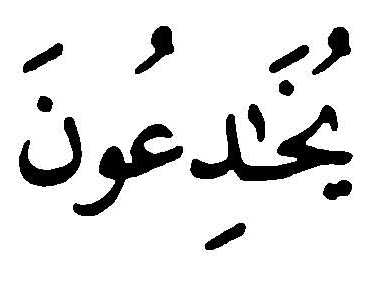 يُخَٰدِعُونَ